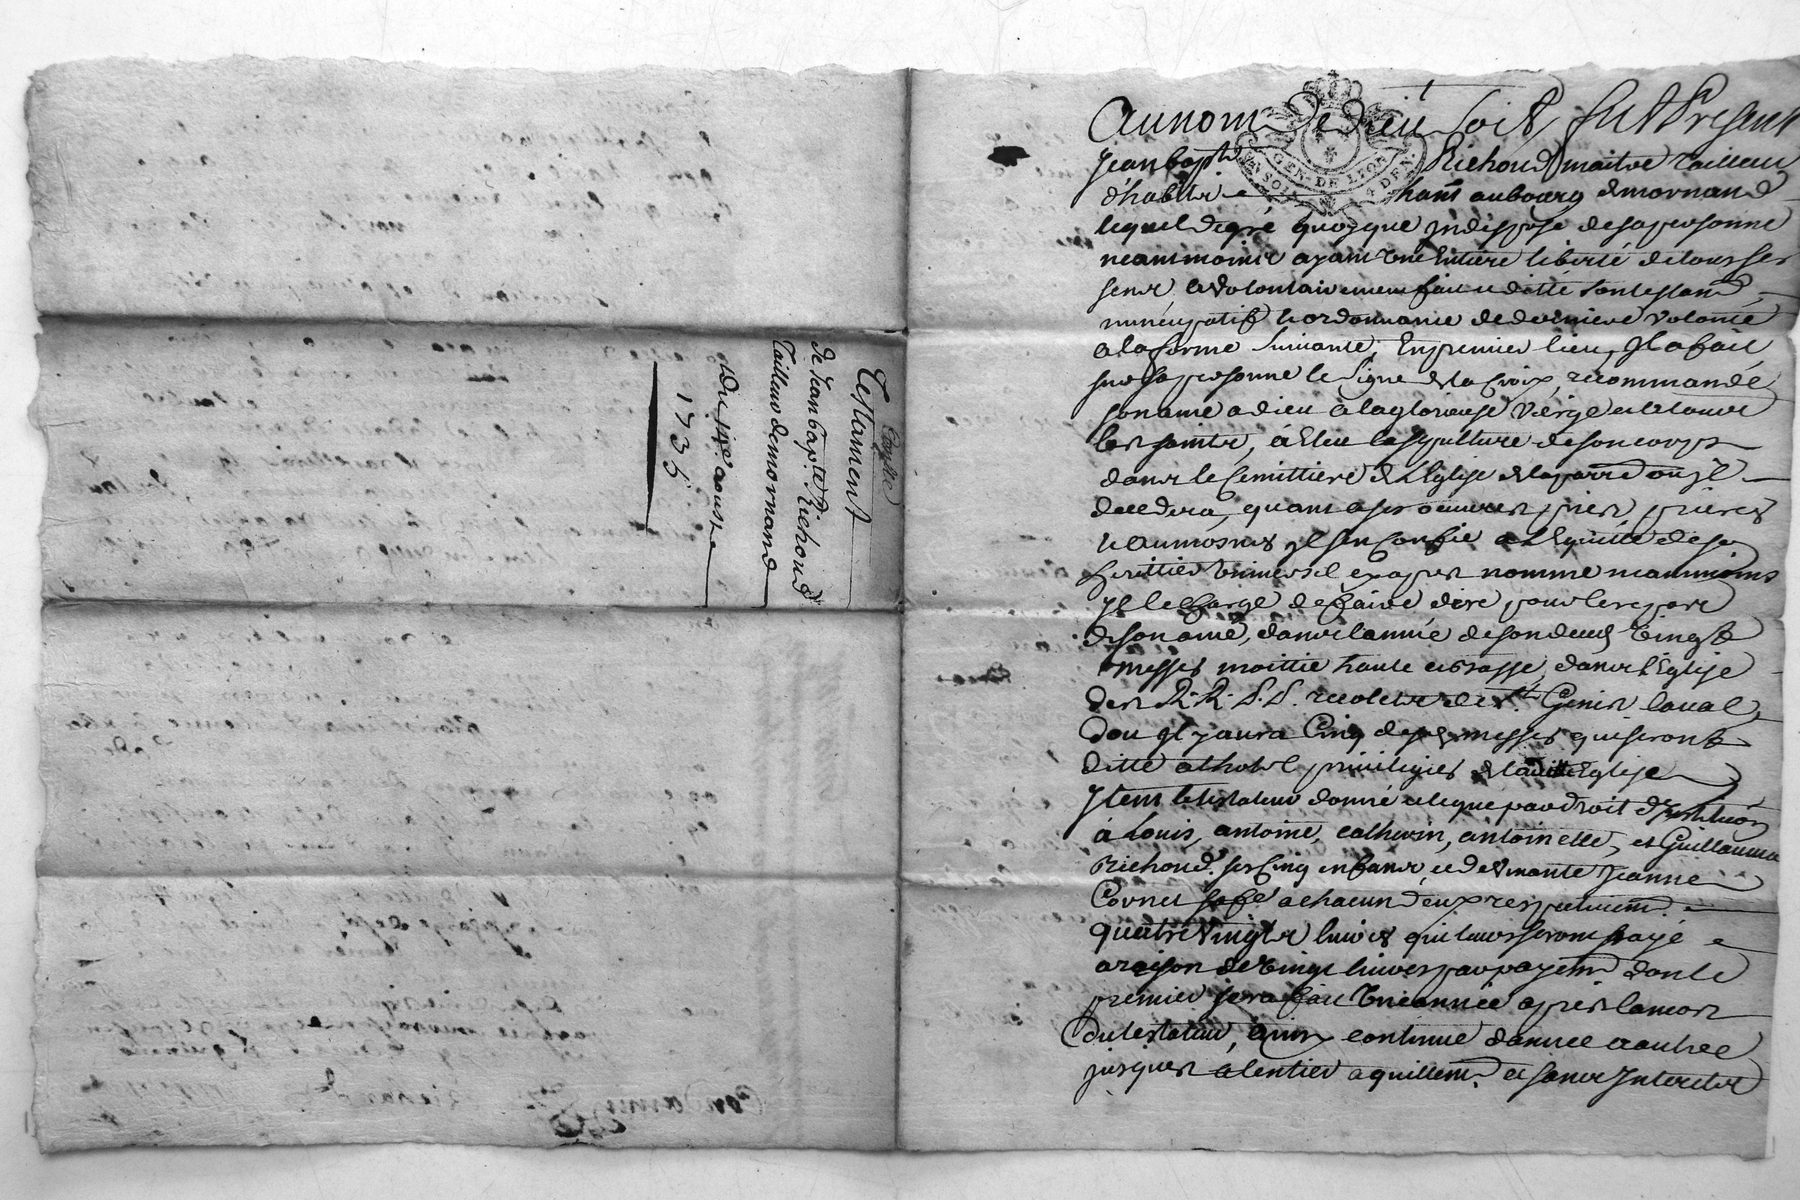 Testament
de Jean bapte Richoud
Tailleur demornand
du 14e aoust
1735
Au nom de dieu soit fut Present
Jean bapte Richoud maitre tailleur
d'habits hant au bourg demornand
lequel degré quoyque Jndisposé desapersonne
neammoins ayant Une Entiere liberté detous ses
sens a volontairement fait et ditté sontestamt
nuncupatif et ordonnance de derniere volonté
alaforme suivante, En premier lieu, Jl a fait
sur sapersonne le Signe de la Croix, recommandé
son ame a dieu a laglorieuse Vierge et atous
les saints, a Eleu la sepulture de son corps
dans le Cemittiere de L'Eglise de la parre ou jl
decedera, quant a ses oeuvres pies prieres
et aumosnes jl s'en Confie a L'Equitté de son
herittier Universel cy apres nommé neammoins
Jl le Charge de faire dire pour le repos
de son ame, dans l'année de son deces Vingt
messes moittié haute et basse, dans l'Eglise
des R.R. P.P. recolets de st. Genis laval,
Dou jl y aura Cinq desd. messes qui seront
ditte a lhotel privilegiés de laditte Eglise
Jtem le testateur donne et legue par droit d'Jnstituon
à Louis, antoine, catherin, antoinette, et Guillaume
Richoud. ses Cinq enfans, et de Jeanne
Cornet sa fe. a chacun d'eux respectivemt.
quatre Vingts livres qui leurs seront payé
a raison de Vingt livres par payemt dont le
premier sera fait Une année apres la mort
du testateur, ainsy continué dannée a autre
jusques a lentier aquittemt. et sans Jnterets